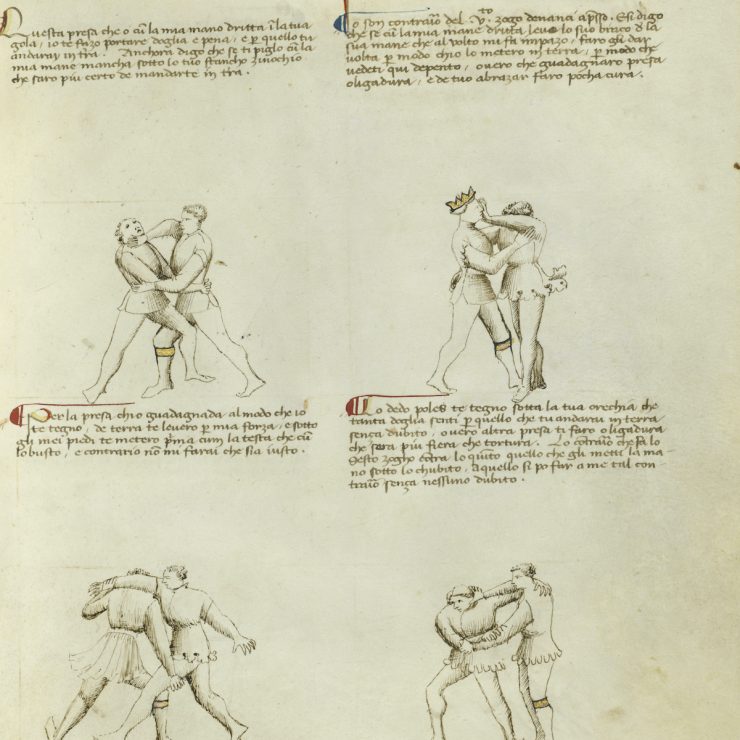 Questa presa che o cu la mia mano dritta in la tua
gola, io te fazo portare doglia e pena, e per quello tu
andarai in tra. Anchora digo che se ti piglo cu la
mia mane mancha sotto lo tuo stancho zinochio
che saro più certo de mandarte in tra.
Io son contrario del V.to zogo denanci apsso. E si digo
che se cu la mia mane dritta levo lo suo brazo de la
sua mane che al volto mi fa impazo, faro gli dar
volta per modo ch'io lo metero in terra, per modo che
vedeti qui depento, overo che guadagnaro presa
o ligadura, e de tuo abrazar faro pocha cura.
Per la presa ch'io guadagnada al modo che io
te tegno, de terra te levero per mia forza, e sotto
gli mei piedi te metero prima cum la testa che cu
lo busto, e contrario no mi farai che sia iusto.
Lo dedo polese te tegno sotta la tua orechia che
tanta doglia senti per quello che tu andarai in terra
sença dubito, overo altra presa ti faro o ligadura
che sera più fiera che tortura. Lo contrario che fa lo
sesto zogho contra lo quinto quello che gli metti la ma-
no sotto lo chubito, aquello si po far a me tal con-
trario sença nessuno dubito.